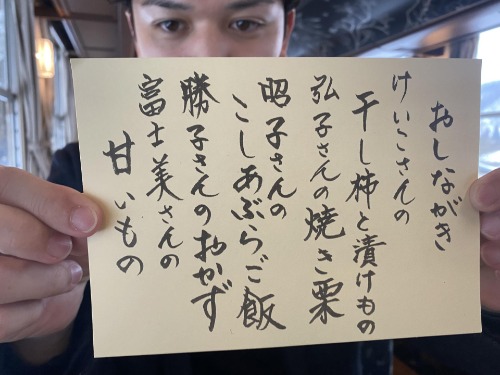 おしながき
けいこさんの
干し柿と漬けもの
弘子さんの焼き栗
昭子さんの
こしあぶらご飯
勝子さんのおかず
富士美さんの
甘いもの